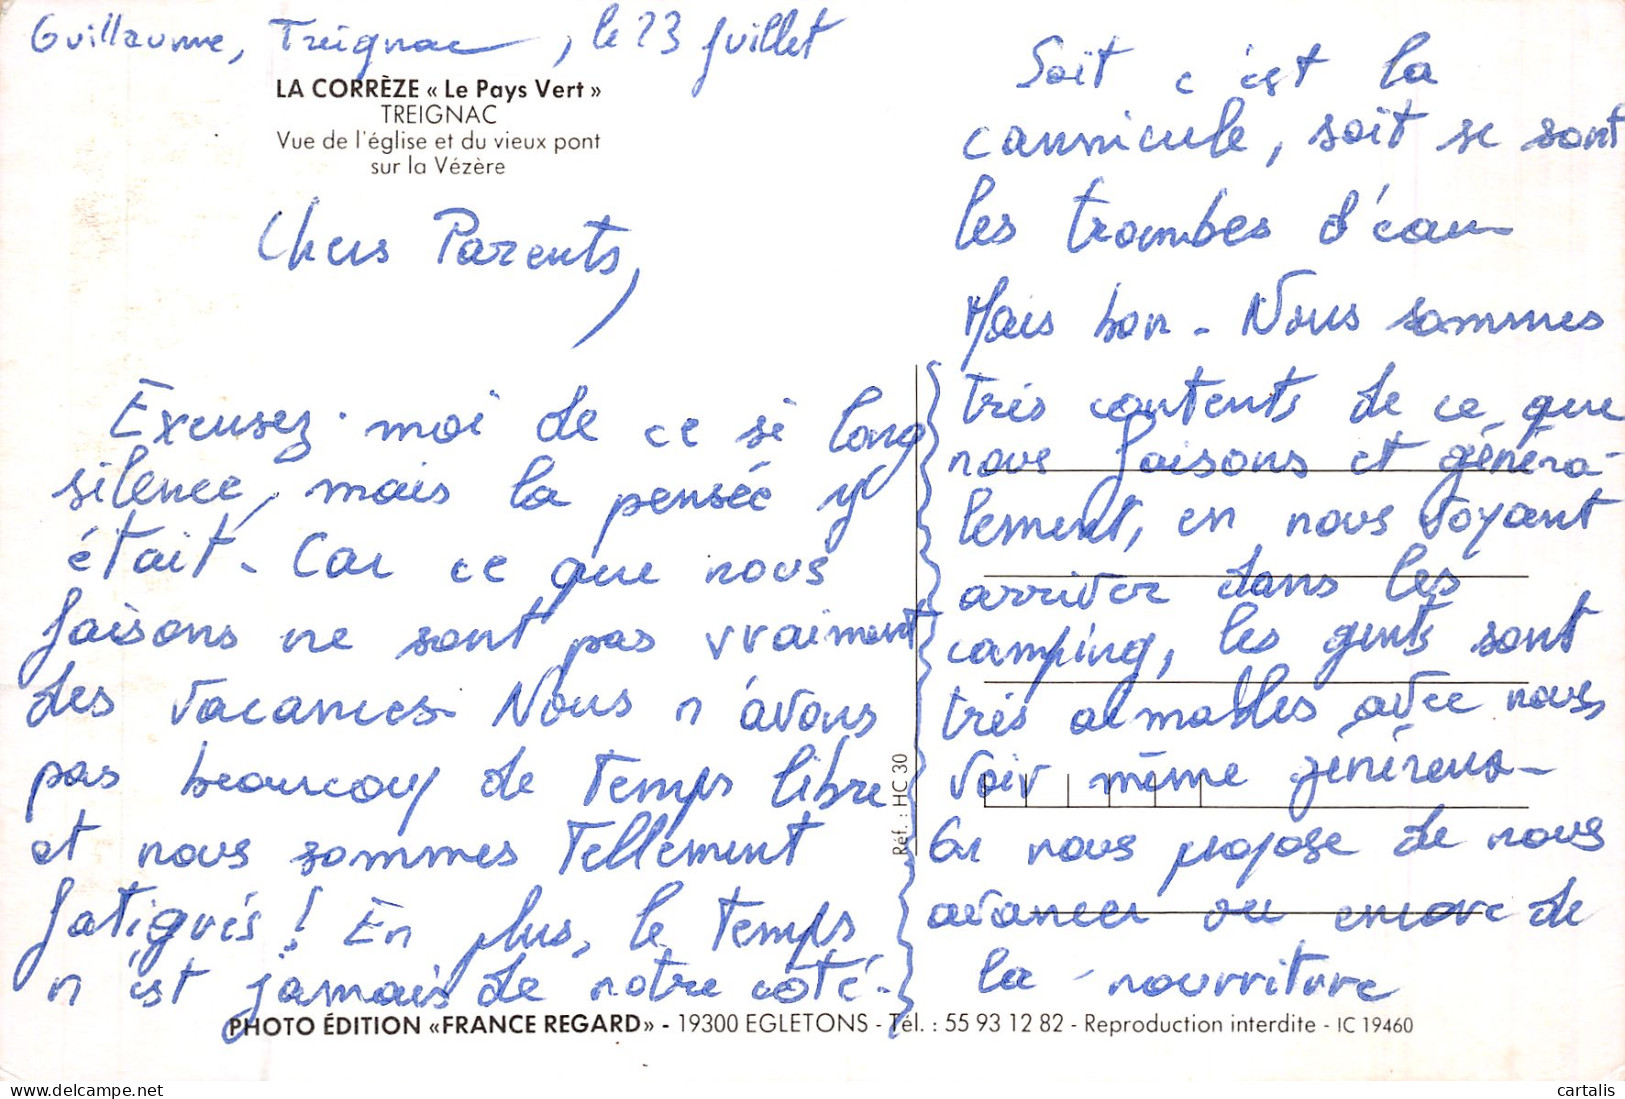 Guillaume, Treignac, le 23 Juillet
LA CORRÈZE « Le Pays Vert »
TREIGNAC
Vue de l'église et du vieux pont
sur la Vézère
Chers Parents,
Excusez-moi de ce si long
silence, mais la pensée y
était. Car ce que nous
faisons ne sont pas vraiment
des vacances. Nous n'avons
pas beaucoup de temps libre
et nous sommes tellement
fatigués! En plus, le temps
n'est jamais de notre côté.
Soit c'est la
cannicule, soit se sont
les trombes d'eau
Mais bon. Nous sommes
très contents de ce que
nous faisons et généra-
lement, en nous voyant
arriver dans les
camping, les gents sont
très aimables avec nous,
voir même généreux.
On nous propose de nous
avancer ou encore de
la nourriture
Réf. : HC 30
PHOTO ÉDITION «FRANCE REGARD» - 19300 EGLETONS - Tél. : 55 93 12 82 - Reproduction interdite - IC 19460
delcampe.net
cartalis